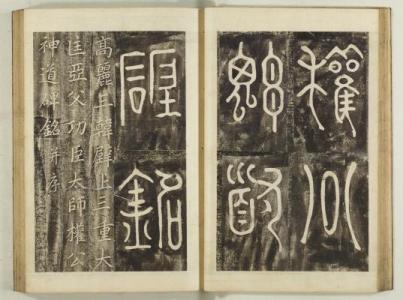 權公
神道
碑銘
高麗三韓壁上三重大
匡亞父功臣太師權公
神道碑銘并序